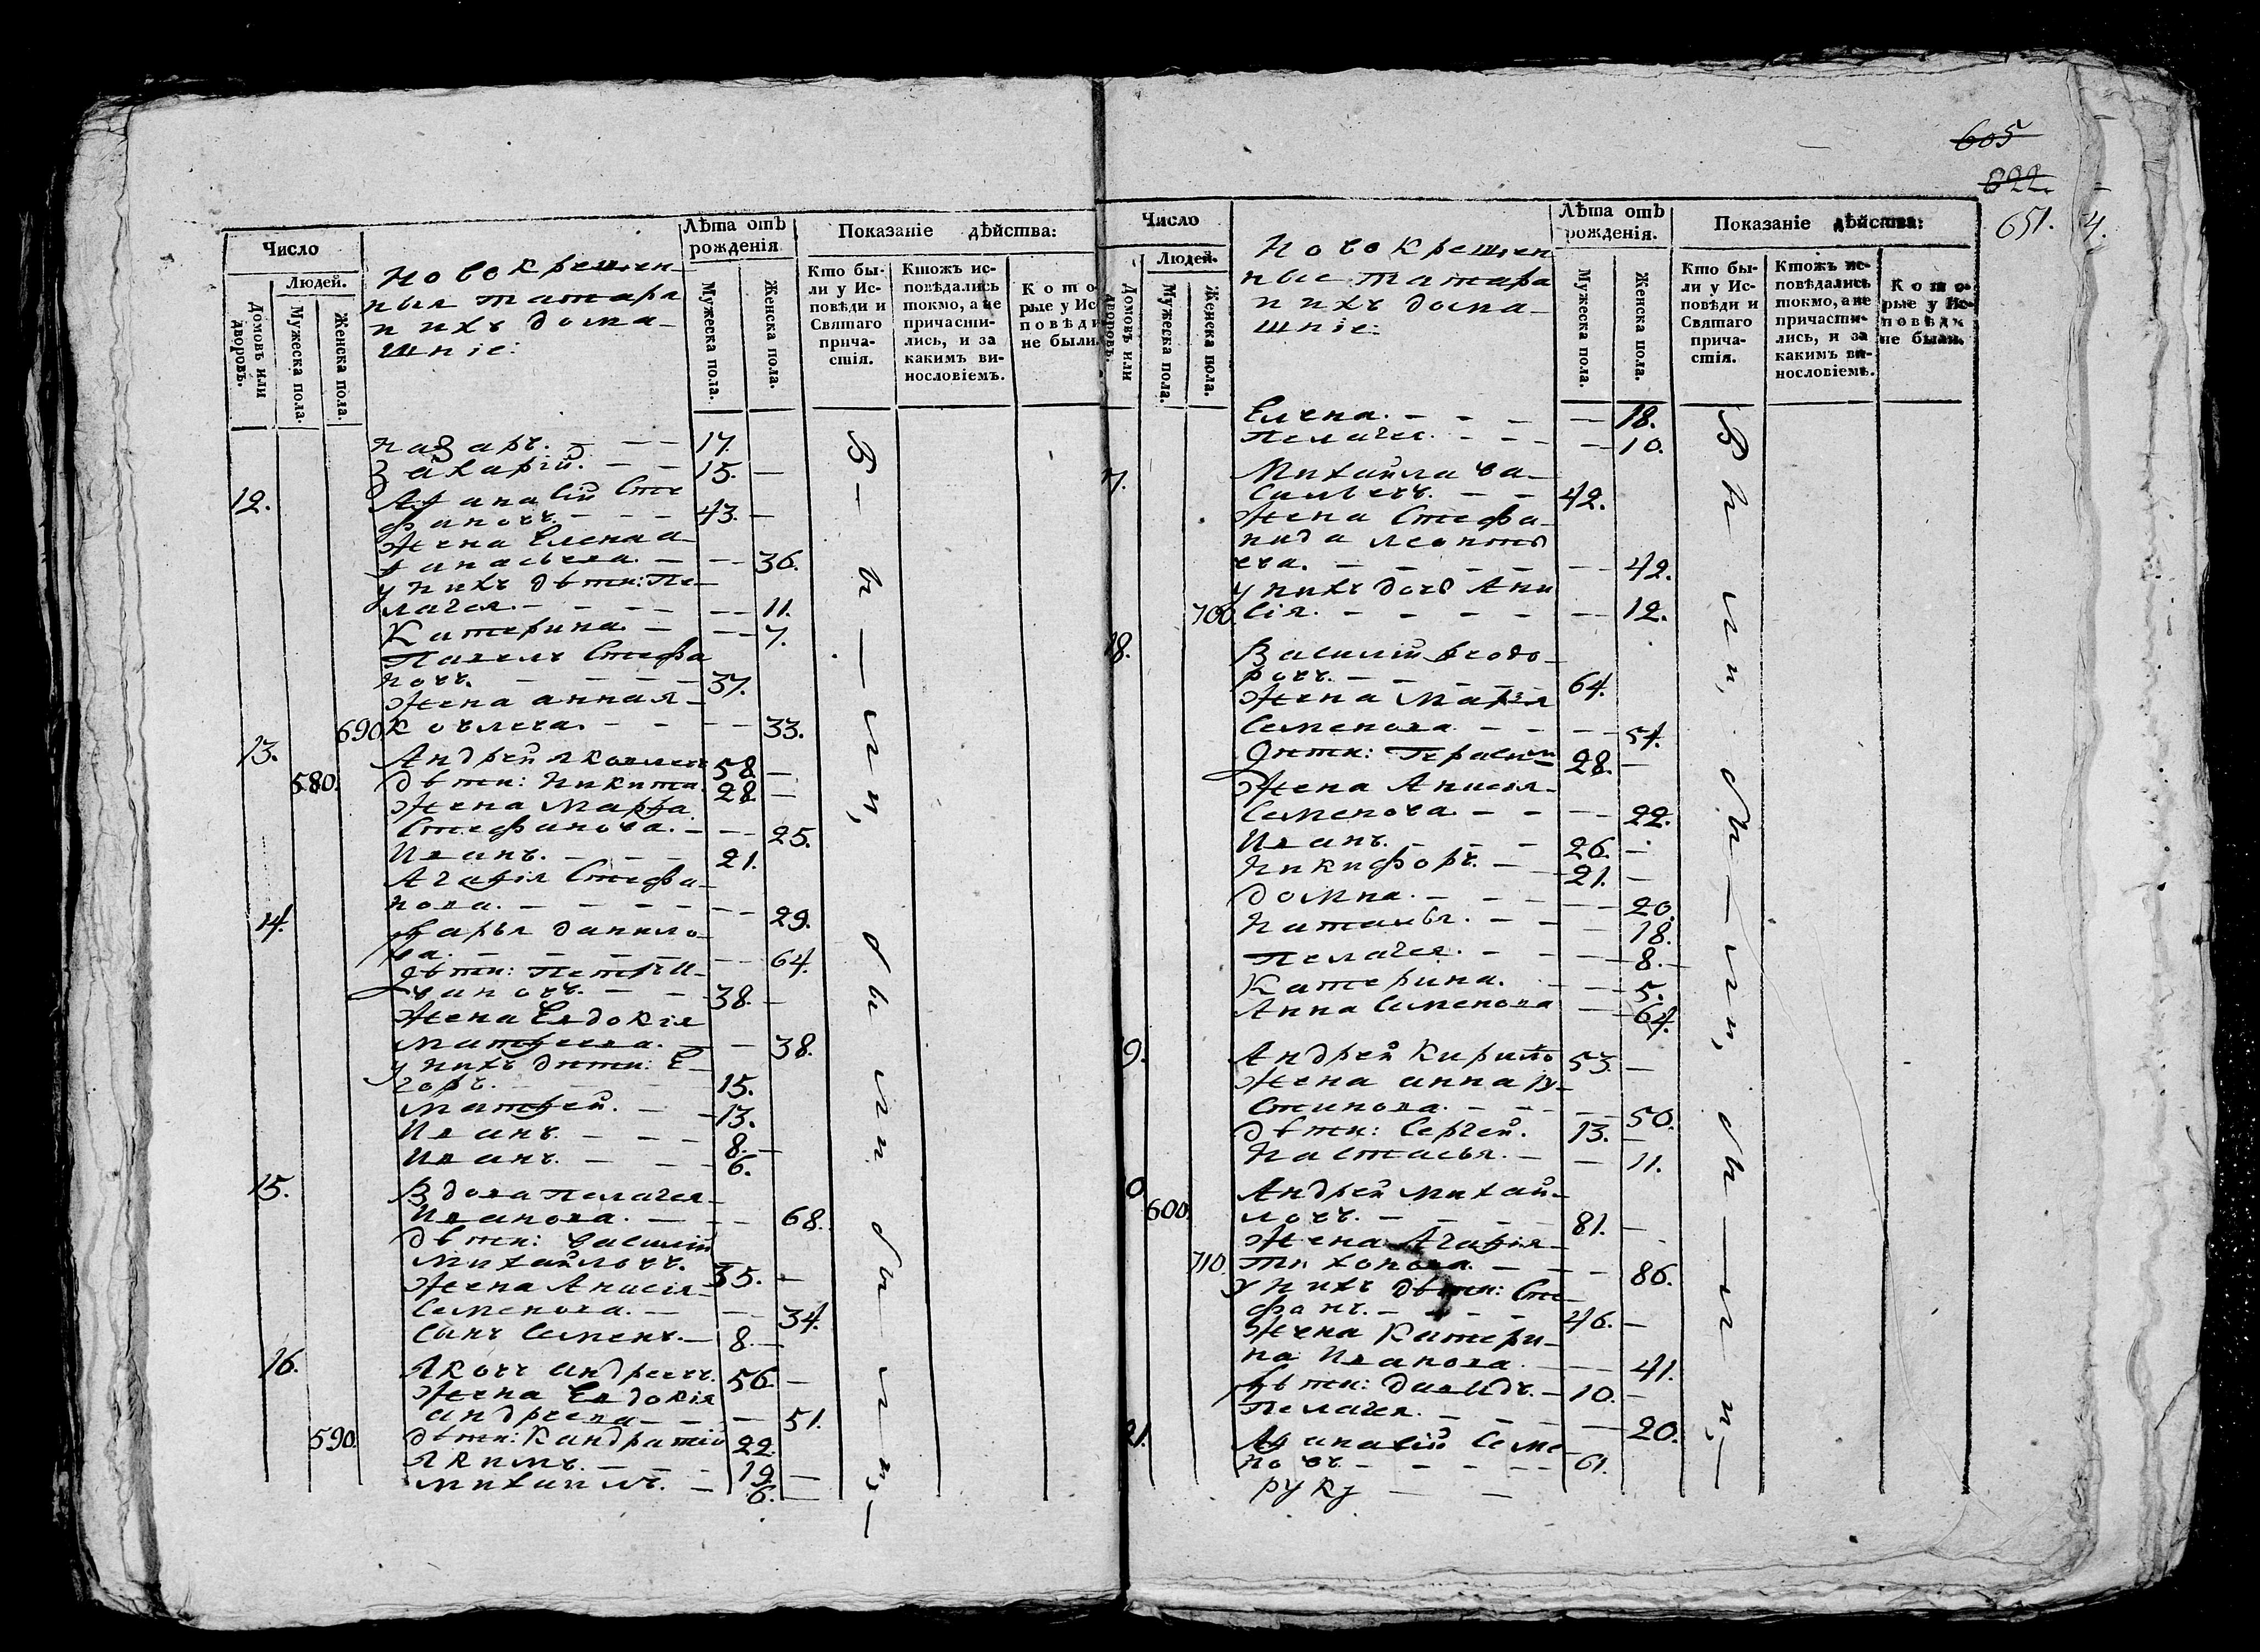 605
822.
651. 4.
Число
Людей.
Домовъ или дворовъ.
Мужеска пола.
Женска пола.
Новокрешен
ныя татара
и ихъ дома-
шніе:
Лѣта отъ
рожденія
Мужеска пола.
Женска пола.
Показаніе дѣйства:
Кто бы-
ли у Ис-
повѣди и
Святаго
прича-
стія.
Ктожъ ис-
повѣдались
токмо, а не
причасти-
лись, и за
какимъ ви-
нословіемъ.
Кото-
рые у Ис-
повѣди
не были.
Назаръ. - - - 17.
Захарій. - - 15. -
12. Афанасій Сте
фановъ. - - - 43. -
Жена Елена а-
фанасьева. - - - 36.
у нихъ дѣти: Пе-
лагея. - - - - 11.
Катерина. - - - 7.
Павелъ Стефа
новъ. - - - - 37.
Жена анна я-
690 ковлева. - - - 33.
13. Андрей Яковлевъ 58. -
580. дѣти: Никита 28. -
Жена Марфа
Стефанова. - - - 25.
Иванъ. - - - 21.
Агафія Стефа-
нова. - - - - - 29.
14. Дарья данило-
ва. - - - - - 64.
Дѣти: Петръ И-
вановъ. - - 38. -
Жена Евдокія
Матфеева. - - 38.
у нихъ дѣти: Е-
горъ. - - - 15.
Матфей. - - 13.
Иванъ. - - - 8. -
Иванъ. - - - 6.
15. Вдова пелагея
Иванова. - - - 68.
дѣти: василій
михайловъ. 35. -
Жена Анисія
Семенова. - - 34.
Сынъ Семенъ. - 8. -
16. Яковъ андреевъ. 56. -
Жена Евдокія
андреева - - - 51.
590. дѣти: Кандратій 22.
Якимъ. - - - 19. -
михаилъ. - 6. -
Б - ы - ли, были были -
Число
Людей.
Домовъ или дворовъ.
Мужеска пола.
Женска пола.
Новокрешен
ные татара
и ихъ дома-
шніе:
Лѣта отъ
рожденія.
Мужеска пола.
Женска пола.
Показаніе дѣйства:
Кто бы-
ли у Ис-
повѣди и
Святаго
прича-
стія.
Ктожъ ис-
повѣдались
токмо, а не
причасти-
лись, и за
какимъ ви-
нословіемъ.
Кото-
рые у Ис-
повѣди
не были.
Елена. - - - - 18.
Пелагея. - - - - 10.
7. Михайла ва-
сильевъ. - - 42.
Жена Стефа-
нида леонтѣ
ева. - - - - - 42.
у нихъ дочь Ани
700 сія. - - - - - 12.
18. Василій Феодо-
ровъ. - - - - 64.
Жена Марія
Семенова - - - - 54.
Дѣти: Герасим 28. -
Жена Анисія
Семенова. - - - 22.
Иванъ. - - - 26. -
Никифоръ. - - 21. -
Домна. - - - - - 20.
Наталья. - - - 18.
Пелагея. - - - 8. -
Катерина. - - 5.
Анна Семенова - 64.
9. Андрей Кирило 53. -
Жена анна Ю-
стинова. - - - - 50.
дѣти: Сергей. 13. -
Настасья. - - 11.
0. Андрей михай-
600. ловъ. - - - - 81. -
Жена Агафія
710. Тихонова. - - - 86.
у нихъ дѣти: Сте-
фанъ. - - - - 46. -
Жена Катери-
на Иванова. - - 41.
дѣти: давидъ. - 10. -
Пелагея. - - - - 20.
21. Афанасій Семе-
новъ. - - - - 61.
руку - -
Были, бы - ли, бы - ли, -